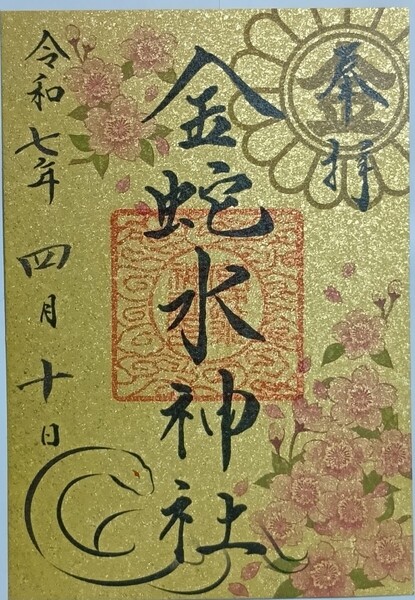 奉拝
金蛇水神社
令和七年四月十日